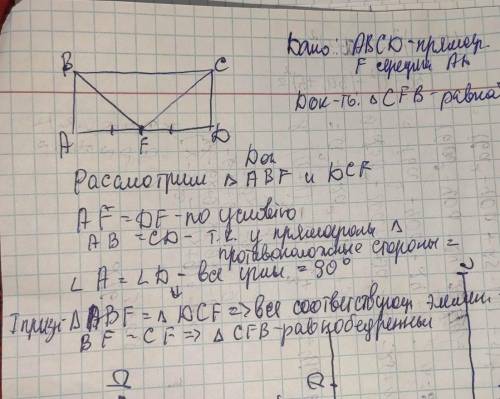 Дано: ABCD-прямоуг.
F середина AD
Док-ть: △ CFB-равноб
B
C
A
F
D
Док
Рассмотрим △ ABF и DCF
AF = DF - по условию
AB = CD - т.к. у прямоугольн
противоположные стороны =
∠ A = ∠ D - все углы = 90°
I призн - △ ABF = △ DCF => все соответствующ элемен
BF = CF => △ CFB-равнобедренный